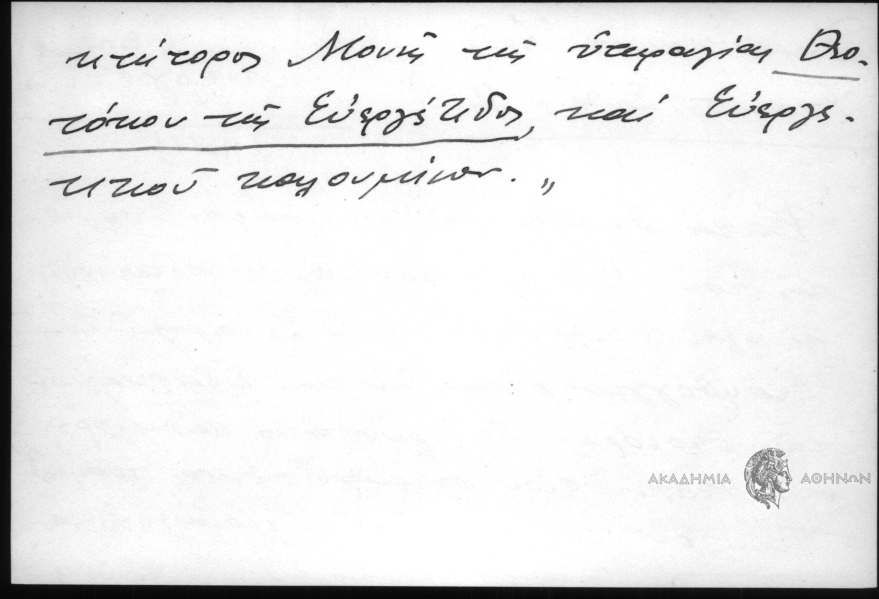 κτήτορος Μονῆς τῆς ὑπεραγίας Θεο-
τόκου τῆς Εὐεργέτιδος, καί Εὐεργε-
τικοῦ καλουμένου. „
ΑΚΑΔΗΜΙΑ ΑΘΗΝΩΝ